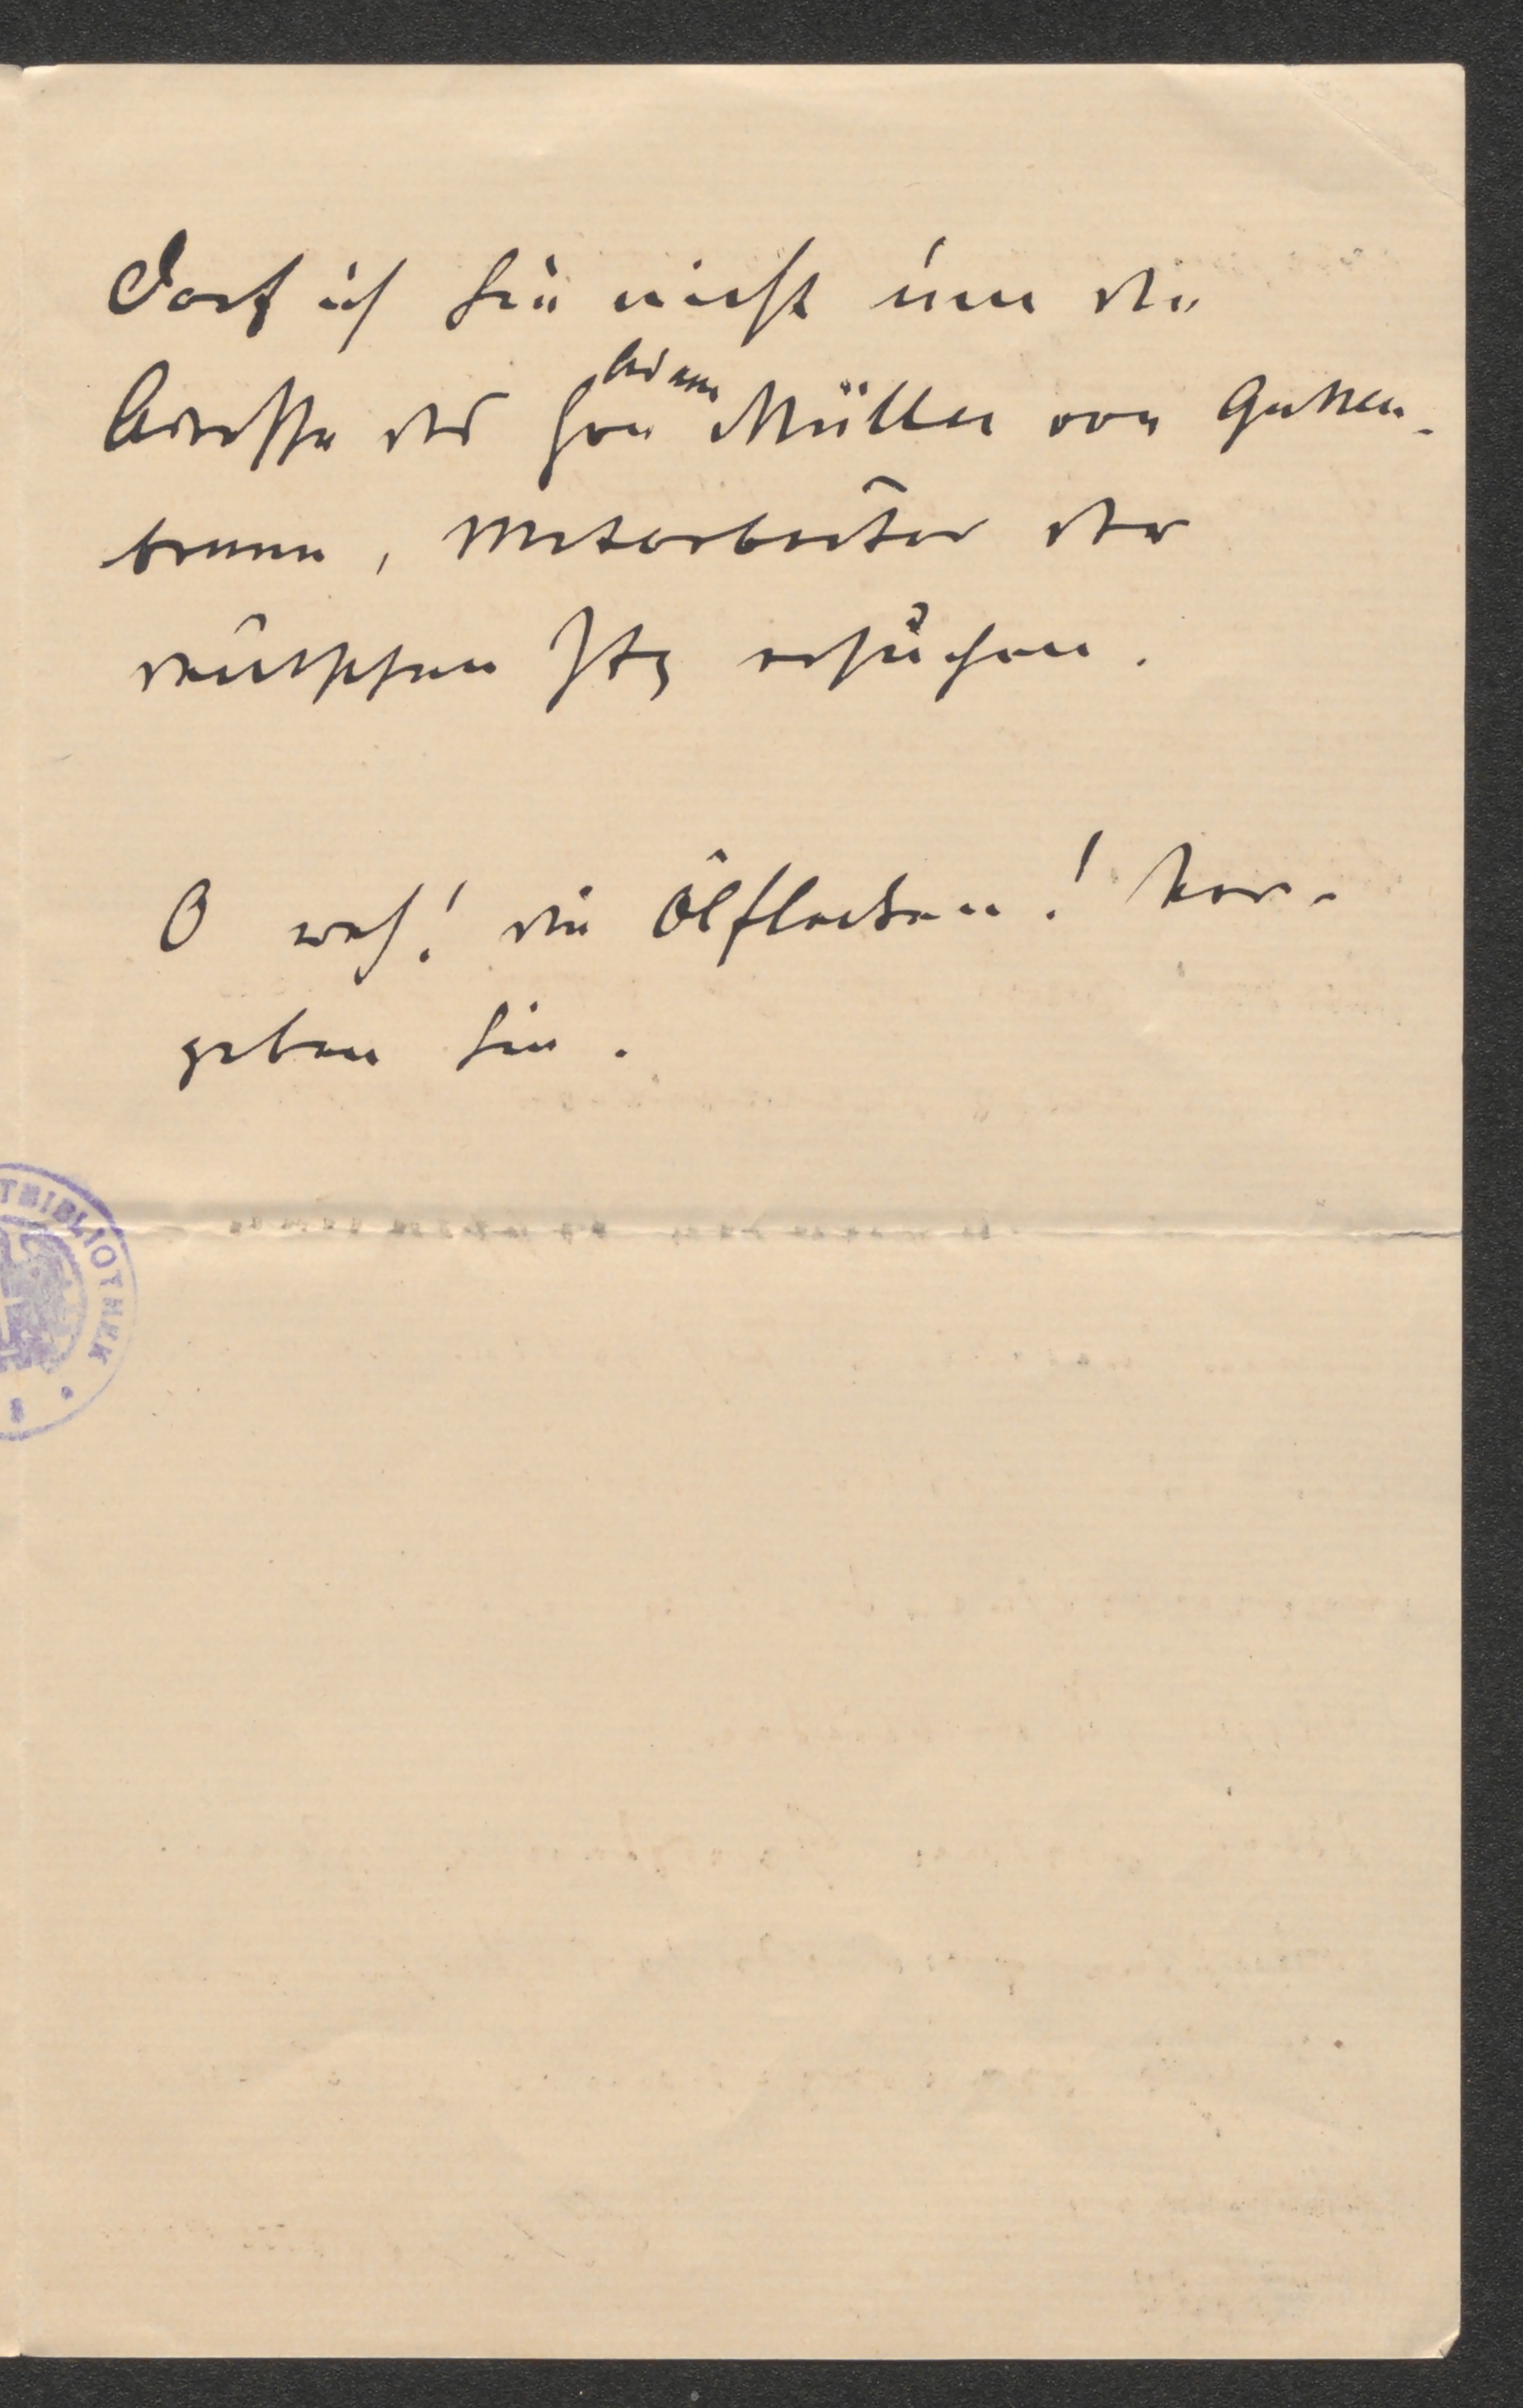 Darf ich Sie nicht um die
Adresse des Hrn Adam Müller von Gutten-
brunn, Mitarbeiter der
deutschen Ztg ersuchen.
O weh! die Ölflecken! Ver-
geben Sie.
TBIBLIOTHEK